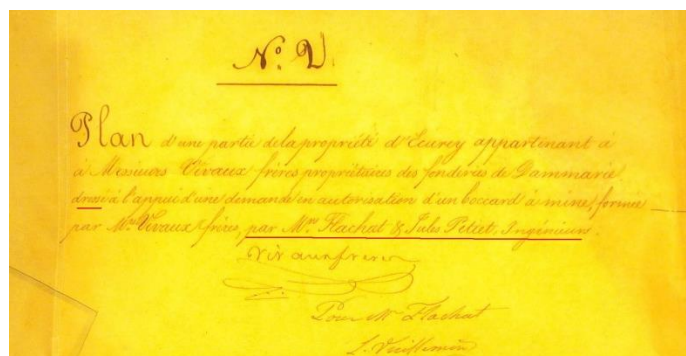 N.º 2.
Plan d'une partie de la propriété d'Ecurey appartenant à
à Messieurs Vivaux frères propriétaires des fonderies de Dammarie
dressé à l'appui d'une demande en autorisation d'un boccard à mine, formée
par M.rs Vivaux frères, par M.rs Flachat & Jules Petiet, Ingénieurs.
Vivaux frères
Pour Mr Flachat